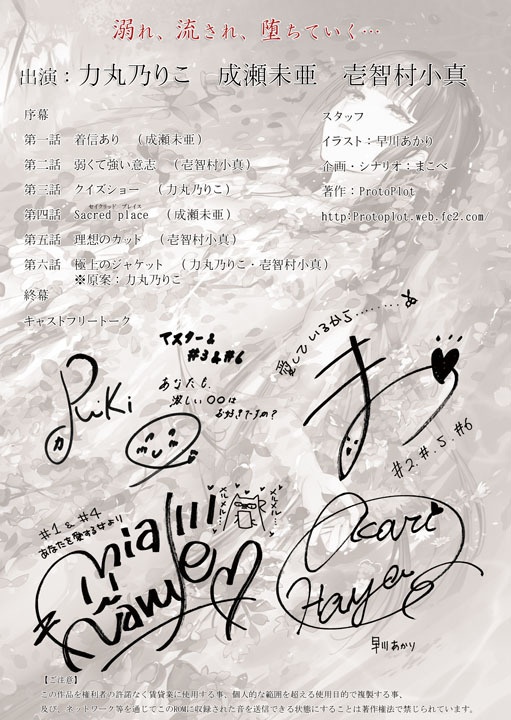 溺れ、流され、堕ちていく…
出演：力丸乃りこ　成瀬未亜　壱智村小真
序幕
第一話　着信あり　（成瀬未亜）
第二話　弱くて強い意志　（壱智村小真）
第三話　クイズショー　（力丸乃りこ）
セイクリッド　プレイス
第四話　Sacred place　（成瀬未亜）
第五話　理想のカット　（壱智村小真）
第六話　極上のジャケット　（力丸乃りこ・壱智村小真）
※原案：力丸乃りこ
終幕
キャストフリートーク
スタッフ
イラスト：早川あかり
企画・シナリオ：まこべ
著作：ProtoPlot
http:Protoplot.web.fc2.com/
マスター&
#3&#6
あなたも、
激しい〇〇は
お好きですの？
RiKi
愛しているから………
#2.#.5.#6
#1&#4
あなたを愛する母より
メルメル…
メルメル…
Mia
Naruse
Akari
Haya
早川あかり
【ご注意】
この作品を権利者の許諾なく賃貸業に使用する事、個人的な範囲を超える使用目的で複製する事、
及び、ネットワーク等を通じてこのROMに収録された音を送信できる状態にすることは著作権法で禁じられています。